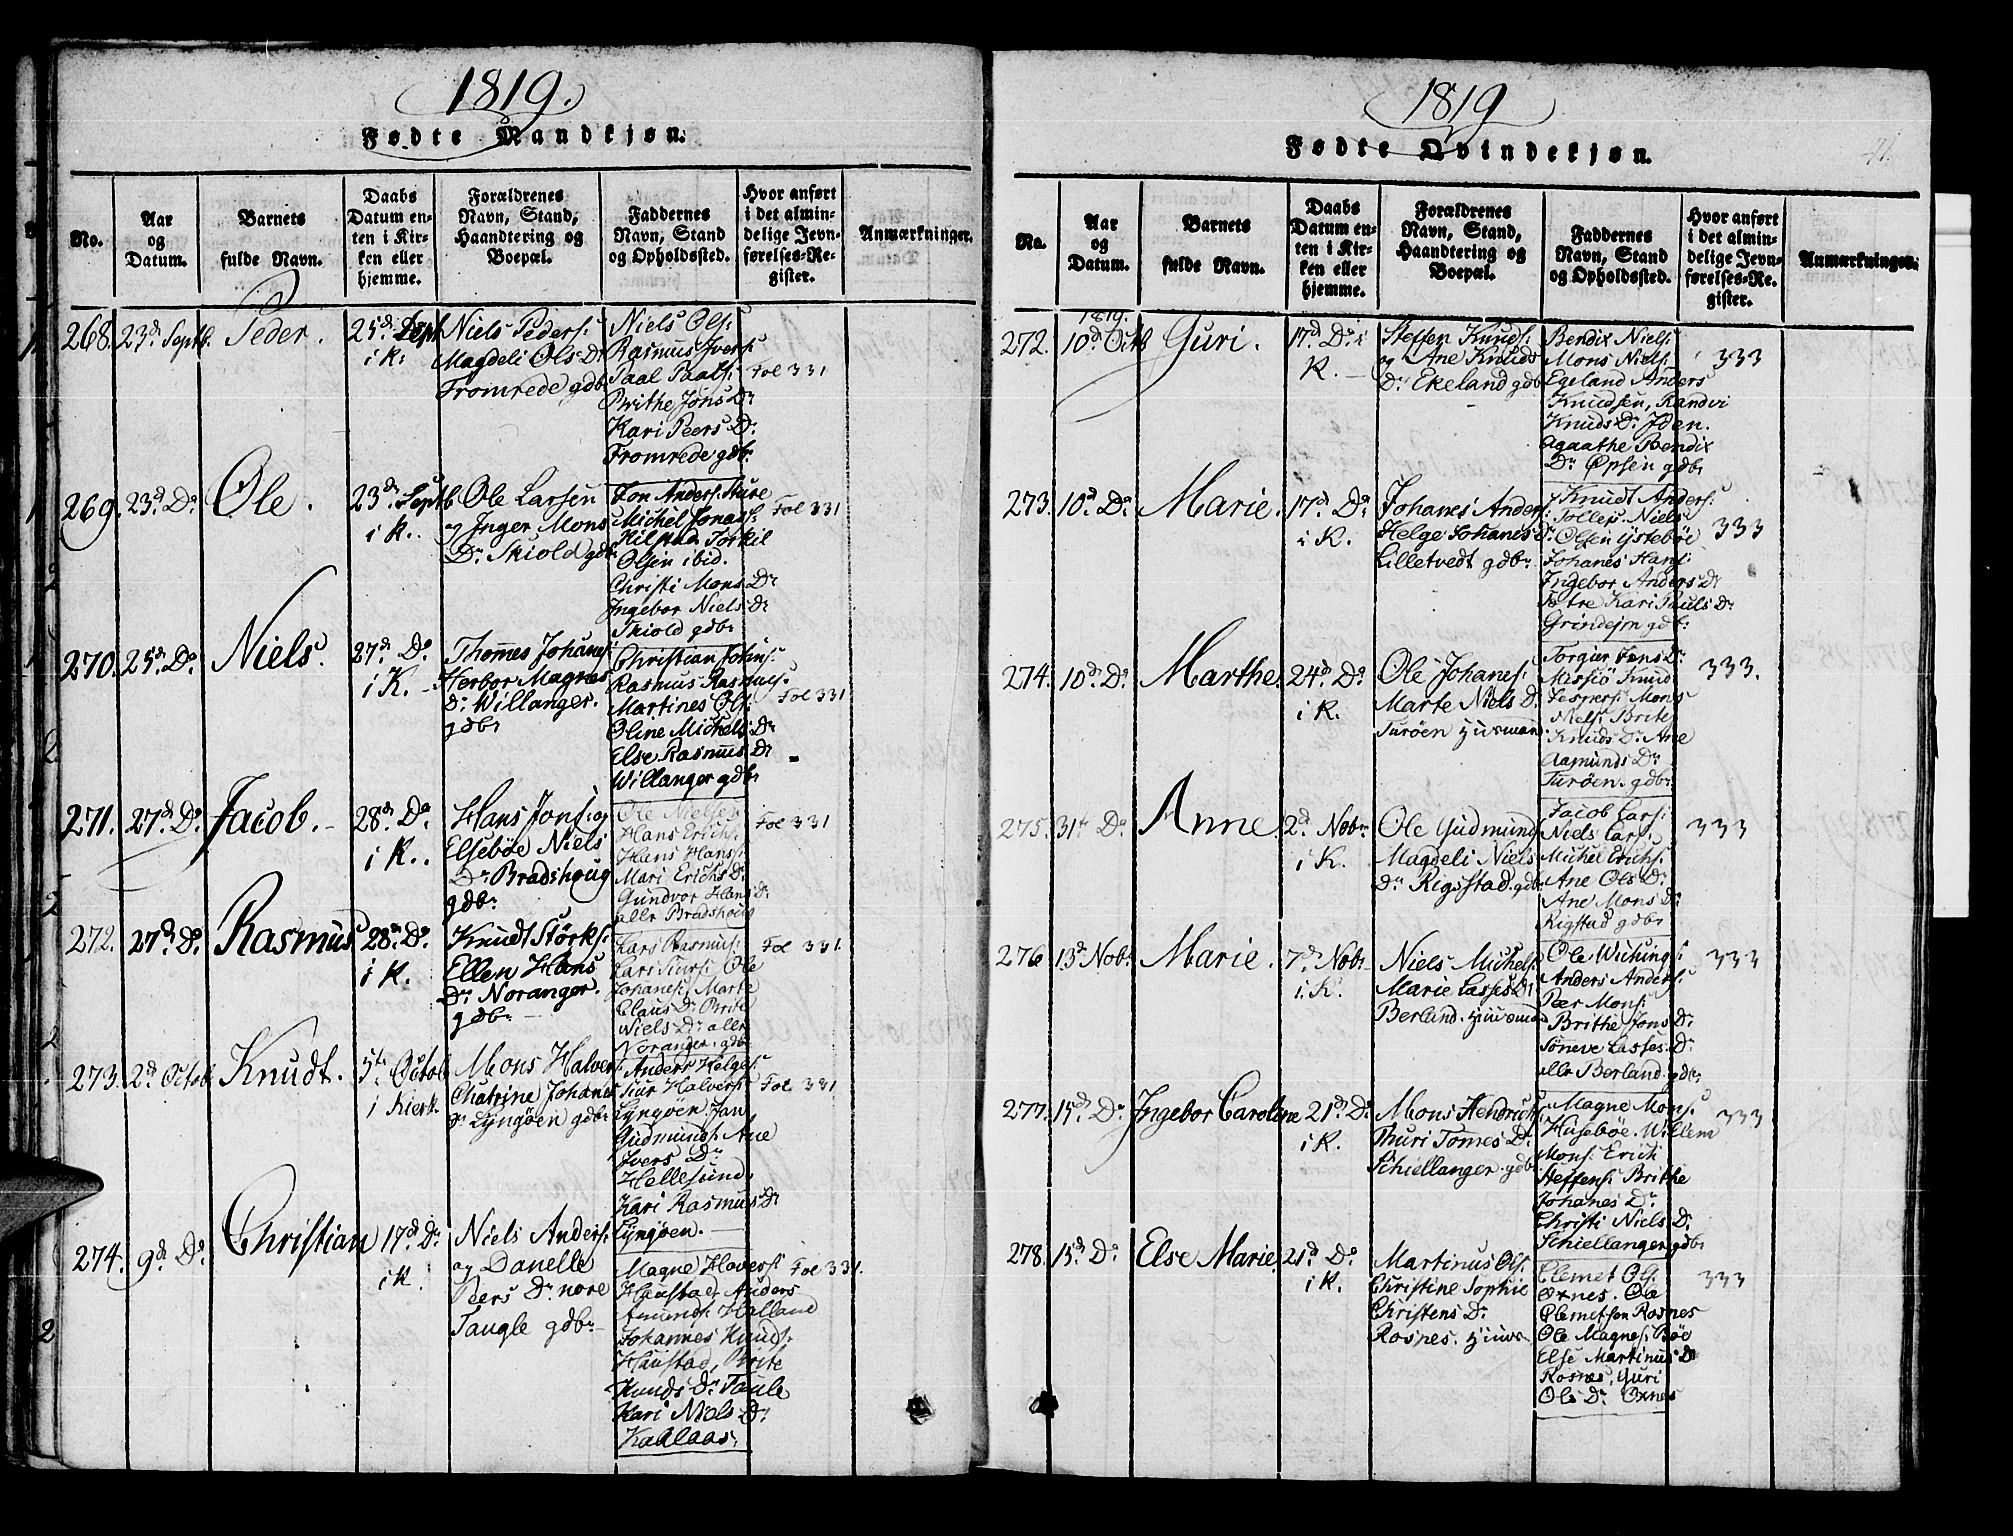 1819.
Fødte Mandkjøn.
No.
Aar og Datum.
Barnets fulde Navn.
Daabs Datum enten i Kirken eller hjemme.
Forældrenes Navn, Stand, Haandtering og Boepæl.
Faddernes Navn, Stand og Opholdssted.
Hvor anført i det almindelige Jevnførelses-Register.
Anmærkninger.
268. 23d Septb. Peder. 25de Sept. i K.
Niels Peders:
Magdeli Ols Dr
Fromrede gdbr
Niels Ols:
Rasmus Ivers:
Paal Paals:
Brithe Jøns Dr
Kari Peers Dr
Fromrede gdbr
Fol 331
269. 23d Do Ole. 23de Septb i K.
Ole Larsen
og Inger Mons
Dr Skiold gdbr
Jon Anders: Sture
Michel Jonas:
Hilstad Torkil
Olsen ibid.
Christi Mons Dr
Ingebor Niels Dr
Skiold gdbr
Fol 331
270. 25de Do Niels. 27de Do i K.
Thomes Johanes:
Herbor Magnes
Dr Willanger.
gdbr
Christian Johns:
Rasmus Rasmus:
Martines Ols:
Oline Michels Dr
Else Rasmus Dr
Willanger gdbr
Fol 331
271. 27de Do Jacob. 28de Do i K.
Hans Jons: og
Elsebøe Niels
Dr Bradshoug
gdbr
Ole Nielsen
Hans Erichs:
Hans Hans:
Mari Erichs Dr
Gundvor Hans Dr
alle Bradshoug
Fol 331
272. 27de Do Rasmus 28de Do i K.
Knudt Størks:
Ellen Hans
Dr Noranger.
gdbr
Lars Rasmus:
Lars Siurs: Ole
Johanes: Marte
Claus Dr Brite
Niels Dr alle
Noranger. gdbr
Fol 331
273. 2d Octob Knudt. 5te Octob i Kierk.
Mons Halvers:
Chatrine Johanes
Dr Lyngøen gdbr
Anders Helges:
Siur Halvers:
Lyngøen Jan
Gudmunds: Ane
Ivers Dr
Hellesund
Kari Rasmus Dr
Lyngøen.
Fol 331
274. 9d Do Christian 17d Do i K.
Niels Anders:
og Danelle
Peers Dr nore
Tangle gdbr
Magne Havers:
Haustad Anders
Amunds: Halland
Johannes Knuds:
Haustad, Brite
Knuds Dr Taule
Kari Niels Dr
Kahlaas.
Fol 331.
1819
Fødte Qvindekjøn.
71.
No.
Aar og Datum.
Barnets fulde Navn.
Daabs Datum enten i Kirken eller hjemme.
Forældrenes Navn, Stand, Haandtering og Boepæl.
Faddernes Navn, Stand og Opholdssted.
Hvor anført i det almindelige Jevnførelses-Register.
Anmærkninger.
1819.
272. 10d Octb Guri. 17d Do i K.
Steffen Knuds:
og Ane Knuds
Dr Ekeland gdbr
Bendix Niels:
Mons Niels:
Egeland Anders
Knudsen, Randvi
Knuds Dr Iden.
Agaathe Bendix
Dr Opsen gdbr
333
273. 10d Do Marie. 17d Do i K.
Johanes Anders:
Helge Johanes Dr
Lilletvedt gdbr
Knudt Anders:
Tolleps: Niels
Olsen ystebøe
Johanes Hans:
Ingebor Anders Dr
Totre Kari Pauls Dr
Grindejm gdbr
333
274. 10d Do Marthe. 24d Do i K.
Ole Johanes:
Marte Niels Dr
Turøen Huusmand
Torgier Jens Dr
Missiø Knud
Jespers: Mons
Niels: Brite
Knuds Dr Ane
Aamunds Dr
Turøen. gdbr
333.
275. 31te Do Anne. 2d Nobr i K.
Ole Gudmund
Magdeli Niels
Dr Rigsstad. gdbr
Jacob Lars:
Niels Lars:
Michel Erichs:
Ane Ols Dr
Ane Mons Dr
Rigstad gdbr
333
276. 13d Nobr Marie. 7d Nobr i K.
Niels Michels:
Marie Lasses Dr
Berland. Huusmand
Ole Wichings:
Anders Anders:
Peer Mons:
Brithe Jons Dr
Søneve Lasses Dr
alle Berland. gdbr
333
277. 15d Do Ingebor Caroline 21d Do i K.
Mons Hendrichs:
Thuri Tomes Dr
Schiellanger. gdbr
Magne Mons:
Husebøe. Willem
Mons: Erich
Steffens: Brithe
Johanes Dr
Christi Niels Dr
Schiellanger gdbr
333
278. 15d Do Else Marie. 21d Do i K.
Martinus Ols:
Christine Sophie
Christens Dr
Rosnes. Huusm
Clemet Ols:
Oxnes. Ole
Clemetsen Rosnes
Ole Magnes: Bøe
Else Martinus Dr
Rosnes, Guri
Ols Dr Oxnes
333